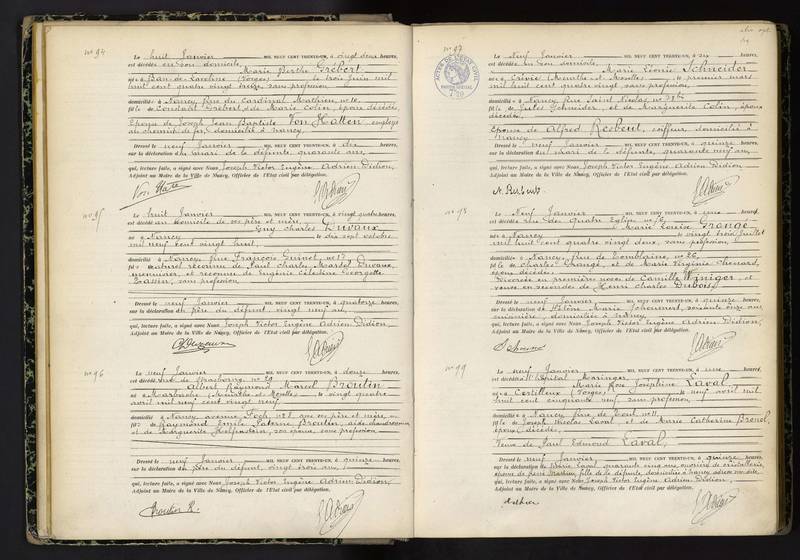 n° 94
Le huit Janvier MIL NEUF CENT TRENTE-UN, à vingt deux heures,
est décédée en son domicile,
Marie Berthe Grébert
née à Ban-de-Laveline (Vosges) le trois juin mil
huit cent quatre vingt treize, sans profession,
domiciliée à Nancy, rue du Cardinal Mathieu, n° 10,
fille de Constant Grébert, et de Marie Colin, époux décédés,
Epouse de Joseph Jean Baptiste Von Hatten, employé
au chemin de fer, domicilié à Nancy.
Dressé le neuf Janvier MIL NEUF CENT TRENTE-UN, à dix heures,
sur la déclaration du mari de la défunte, quarante ans,
qui, lecture faite, a signé avec Nous, Joseph Victor Eugène Adrien Didion,
Adjoint au Maire de la Ville de Nancy, Officier de l'Etat civil par délégation.
n° 95
Le huit Janvier MIL NEUF CENT TRENTE-UN, à vingt quatre heures,
est décédé au domicile de ses père et mère,
Guy Charles Duvaux
né à Nancy le dix sept octobre
mil neuf cent vingt huit,
domicilié à Nancy, rue François Guinet, n° 17
fils naturel reconnu de Paul Charles Marcel Duvaux,
menuisier, et reconnu de Eugénie Célestine Georgette
sans profession
Dressé le neuf Janvier MIL NEUF CENT TRENTE-UN, à quatorze heures,
sur la déclaration du père du défunt, vingt neuf ans,
qui, lecture faite, a signé avec Nous, Joseph Victor Eugène Adrien Didion,
Adjoint au Maire de la Ville de Nancy, Officier de l'Etat civil par délégation.
n° 96
Le neuf Janvier MIL NEUF CENT TRENTE-UN, à douze heures,
est décédé rue de Strasbourg, n° 29
Albert Raymond Marcel Broutin
né à Marbache (Meurthe et Moselle) le vingt quatre
avril mil neuf cent vingt neuf
domicilié à Nancy, avenue Foch, n° 8, avec ses père et mère,
fils de Raymond Emile Paterne Broutin, aide chaudronnier
et de Marguerite son épouse, sans profession
Dressé le neuf Janvier MIL NEUF CENT TRENTE-UN, à quinze heures,
sur la déclaration du père du défunt, vingt trois ans,
qui, lecture faite, a signé avec Nous, Joseph Victor Eugène Adrien Didion,
Adjoint au Maire de la Ville de Nancy, Officier de l'Etat civil par délégation.
Broutin R.
n° 97
Le neuf Janvier MIL NEUF CENT TRENTE-UN, à six heures,
est décédée en son domicile,
Marie Léonie Schneider
née à Crévic (Meurthe et Moselle) le premier mars
mil huit cent quatre vingt sans profession,
domiciliée à Nancy, rue Saint Nicolas, n°
fille de Jules Schneider, et de Marguerite Colin, époux
décédés,
Epouse de Alfred Rebeul, coiffeur, domicilié à
Nancy
Dressé le neuf Janvier MIL NEUF CENT TRENTE-UN, à quinze heures,
sur la déclaration du mari de la défunte, quarante neuf ans,
qui, lecture faite, a signé avec Nous, Joseph Victor Eugène Adrien Didion
Adjoint au Maire de la Ville de Nancy, Officier de l'Etat civil par délégation.
n° 98
Le neuf Janvier MIL NEUF CENT TRENTE-UN, à une heure,
est décédée rue des Quatre Eglises n°
Marie Louise Grange
née à Nancy le vingt trois juillet
mil huit cent quatre vingt deux, sans profession,
domiciliée à Nancy, rue de Tomblaine, n° 26,
fille de Charles Grange, et de Marie Virginie
époux décédés
Divorcée en premières noces de Camille Winiger, et
veuve en secondes de Henri Charles Dubois,
Dressé le neuf Janvier MIL NEUF CENT TRENTE-UN, à quinze heures,
sur la déclaration de Hélène Marie soixante onze ans,
domiciliée à Nancy,
qui, lecture faite, a signé avec Nous, Joseph Victor Eugène Adrien Didion,
Adjoint au Maire de la Ville de Nancy, Officier de l'Etat civil par délégation.
n° 99
Le neuf Janvier MIL NEUF CENT TRENTE-UN, à une heure,
est décédée à l'Hôpital Maringer,
Marie Rose Joséphine Laval
née à Certilleux (Vosges) le neuf avril mil
huit cent cinquante neuf, sans profession,
domiciliée à Nancy, rue de Toul n° 11,
fille de Joseph Nicolas Laval, et de Marie Catherine
époux décédés,
Veuve de Paul Edmond Laval,
Dressé le neuf Janvier MIL NEUF CENT TRENTE-UN, à quinze heures,
sur la déclaration de Marie Laval, quarante cinq ans,
qui, lecture faite, a signé avec Nous, Joseph Victor Eugène Adrien Didion,
Adjoint au Maire de la Ville de Nancy, Officier de l'Etat civil par délégation.